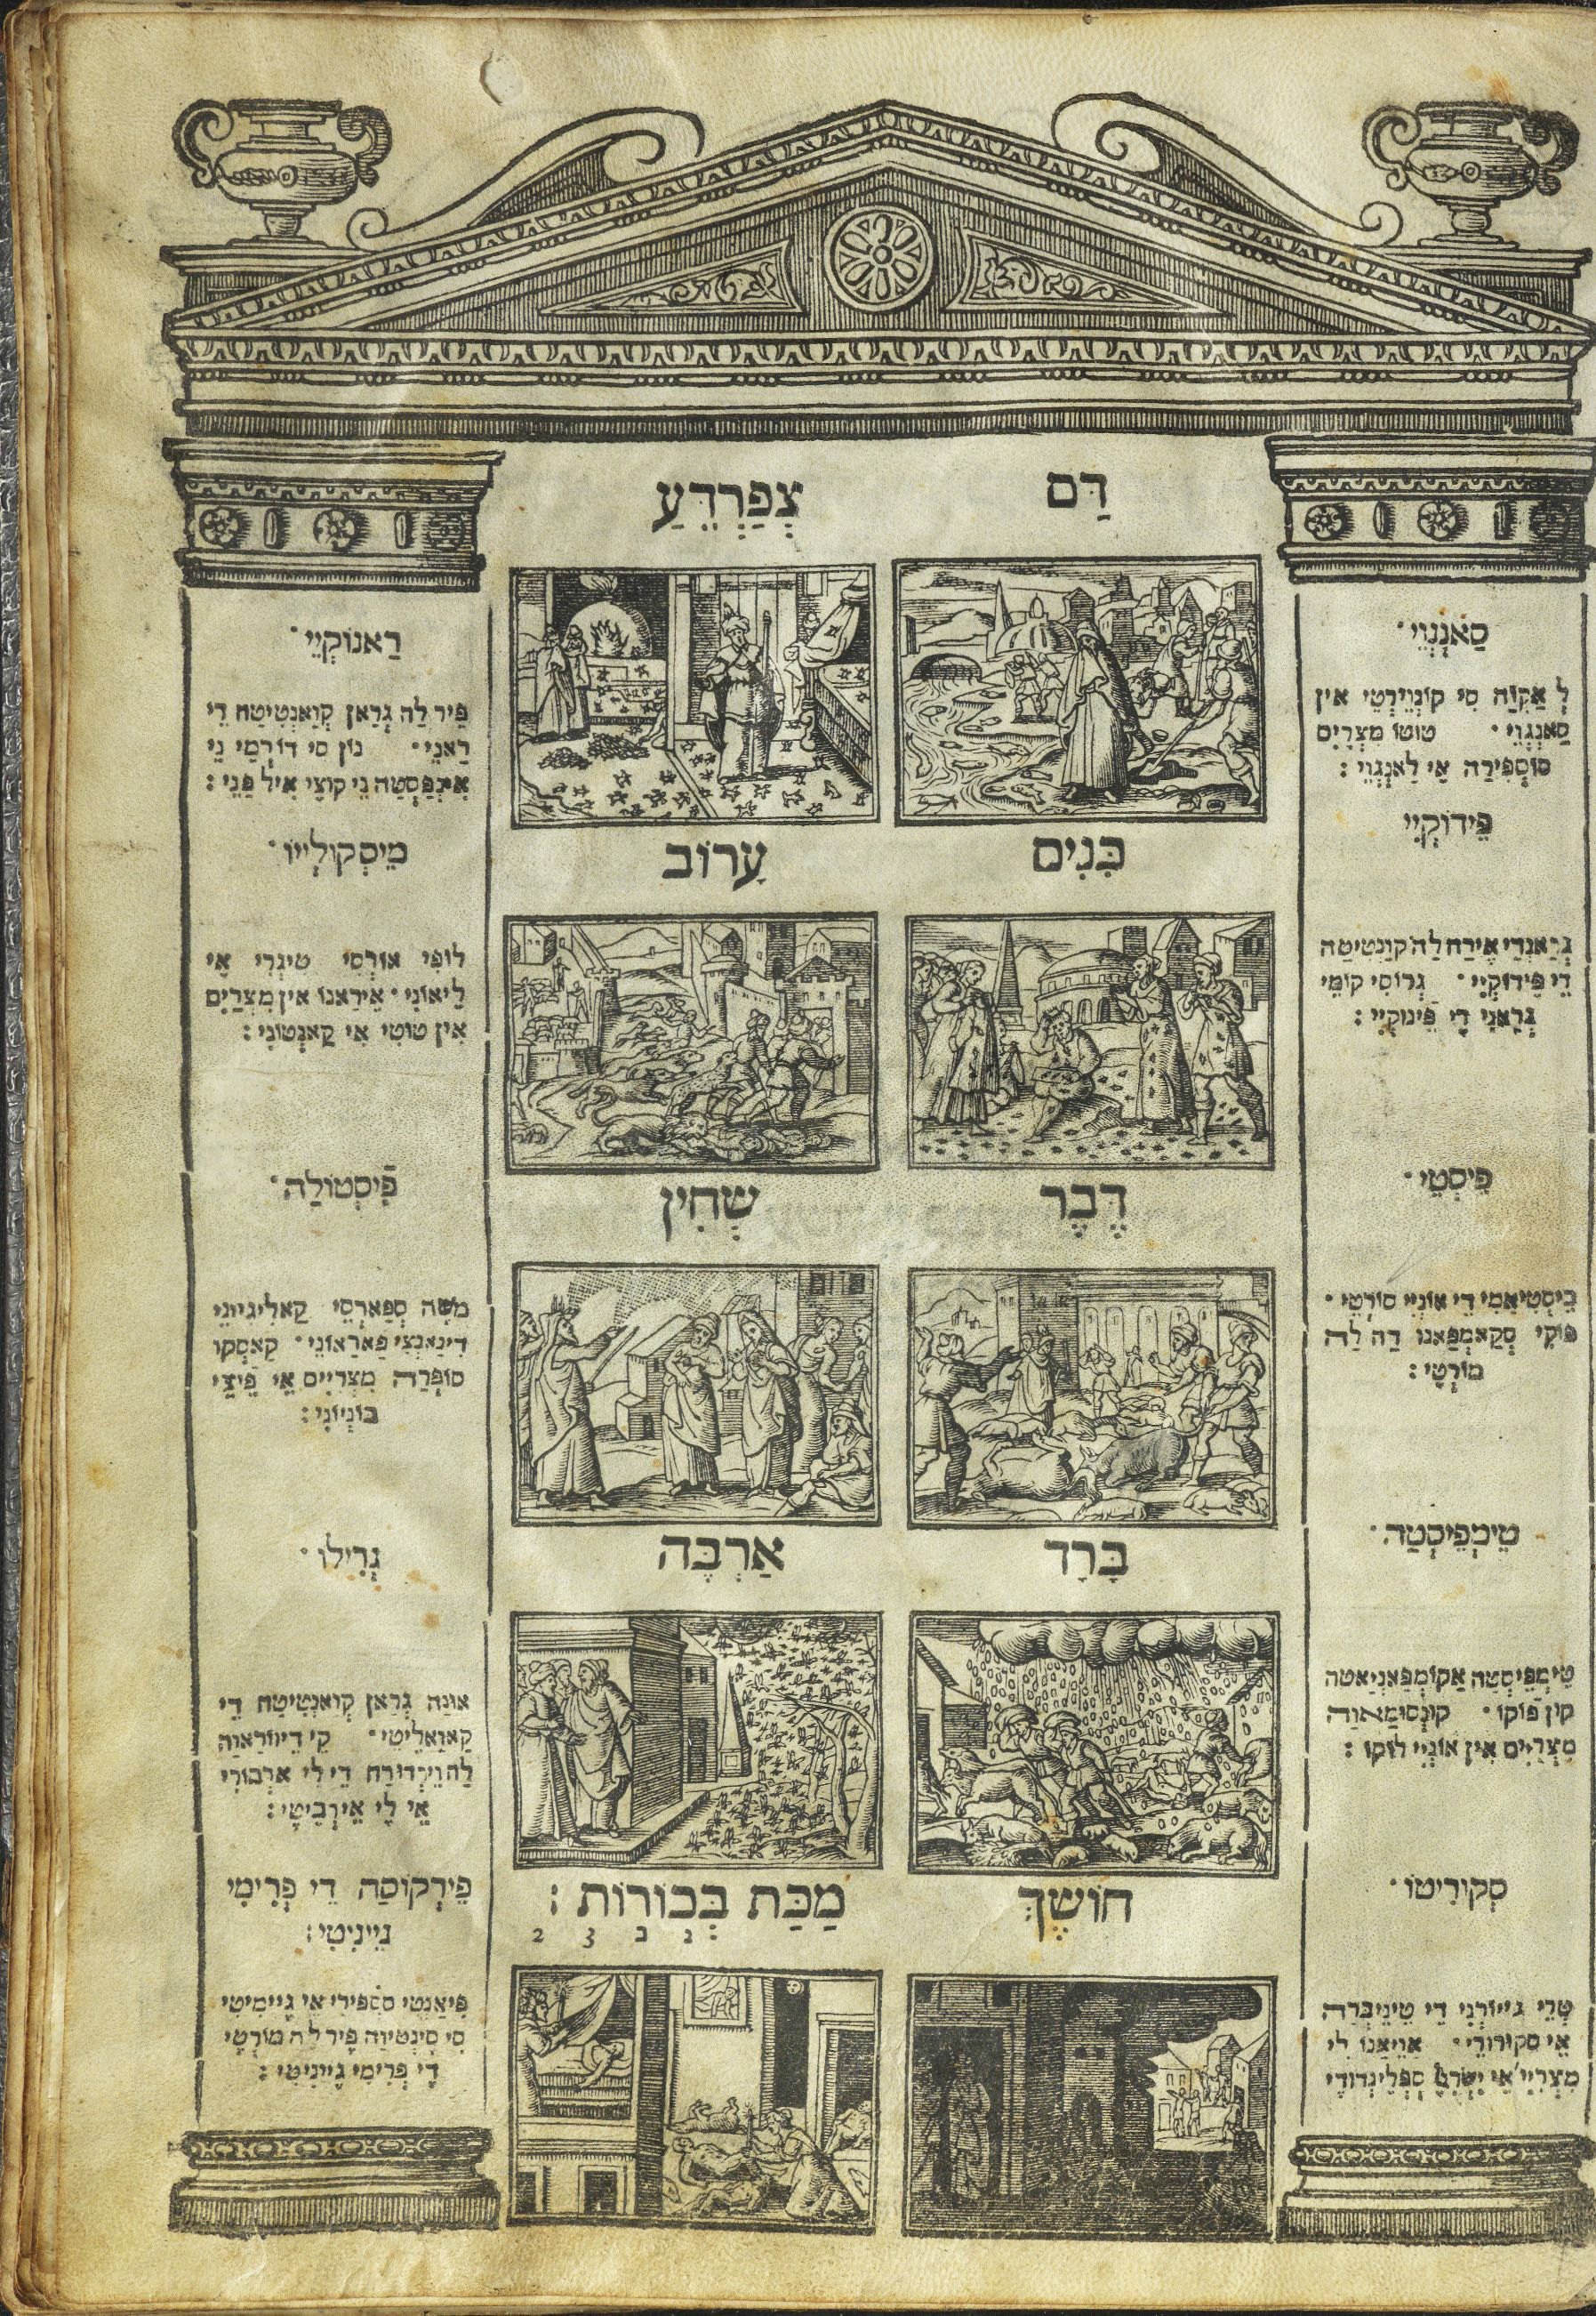 דַּם
צְפַרְדֵּעַ
סַאנְגְוֵי
לְ אַקְוַה סִי קוֹנְוֵירְטֵי אִין
סַאנְגְוֵי טוטו מִצְרָיִם
סוֹסְפִּירַה אַי לַאנְגְוֵי :
רַאנוֹקְיֵי
פֵּיר לַה גְרַאן קְוַאנְטִיטַה דֵי
רַאנֵי נוֹן סִי דוֹרְמֵי נֵי
אִימְפַּסְטַה נֵי קוֹצֵי אִיל פַּנֵי :
כִּנִּים
עָרוֹב
פֵּידוֹקְיֵי
גְרַאנְדֵי אֵירַה לַה קוַנְטִיטַה
דֵי פֵּידוֹקְיֵי גְרוֹסִי קוֹמֵי
גְרָאנֵי דֵי פֵינוֹקְיֵי :
מֵיסְקוּלְיוֹ
לוּפִּי אוּרְסִי טִיגְרֵי אֵי
לֵיאוֹנֵי אֵירַאנוֹ אִין מִצְרַיִם
אִין טוּטִי אִי קַאנְטוֹנִי :
דֶּבֶר
שְׁחִין
פֵּיסְטֵי
בֵּיסְטִיאַמֵי דֵי אוֹנְיֵי סוֹרְטֵי
פּוֹקִי סְקַאמְפַּאנוֹ דַה לַה
מוֹרְטֵי :
פִיסְטוֹלַה
משֶׁה סְפַּארְסֵי קַאלִיגִינֵי
דִינַאנְצִי פַארַאוֹנֵי קַאסְקוֹ
סוֹפְּרַה מִצְרַיִם אֵי פֵיצֵי
בּוֹנְיוֹנִי :
בָּרָד
אַרְבֶּה
טֵימְפֵּיסְטַה
טֵימְפֵּיסְטַה אַקוֹמְפַּאנְיַאטַה
קוֹן פוֹקוֹ קוֹנְסוּמַאוַה
מִצְרַיִם אִין אוֹנְיֵי לוֹקוֹ :
גְרִילוֹ
אוּנַה גְרַאן קְוַאנְטִיטַה דֵי
קַאוַאלֵיטִי קֵי דֵיוּוֹרַאוַה
לַה וֵירְדוּרַה דֵי לִי אַרְבּוֹרִי
אֵי לֵי אֵירְבֵּיטֵי :
חוֹשֶׁךְ
מַכַּת בְּכוֹרוֹת :
2 3 ב נ
סְקוּרִיטוֹ
טְרֵי גִיוֹרְנִי דֵי טֵינֵיבְּרַה
אֵי סְקוּרוֹרֵי אַוֵיאַנוֹ לִי
מִצְרִיֵי אֵי יִשְׂרָאֵל סְפְּלֵינְדוֹרֵי
פֵּירְקוֹסַה דֵי פְּרִימִי
גֵינִיטִי :
פִּיאַנְטִי סוֹסְפִּירִי אֵי גֵימִיטִי
סִי סֵינְטִיוַה פֵּיר לַה מוֹרְטֵי
דֵי פְּרִימִי גֵינִיטִי :